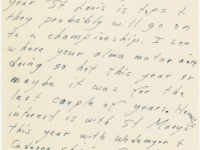 year St Louis is tops &
they probably will go on
to a championship. I see
where your alma mater only
doing so hot this year or
maybe it was for the
last couple of years.
interest is with St Mary's
this year with Wedemeyer &